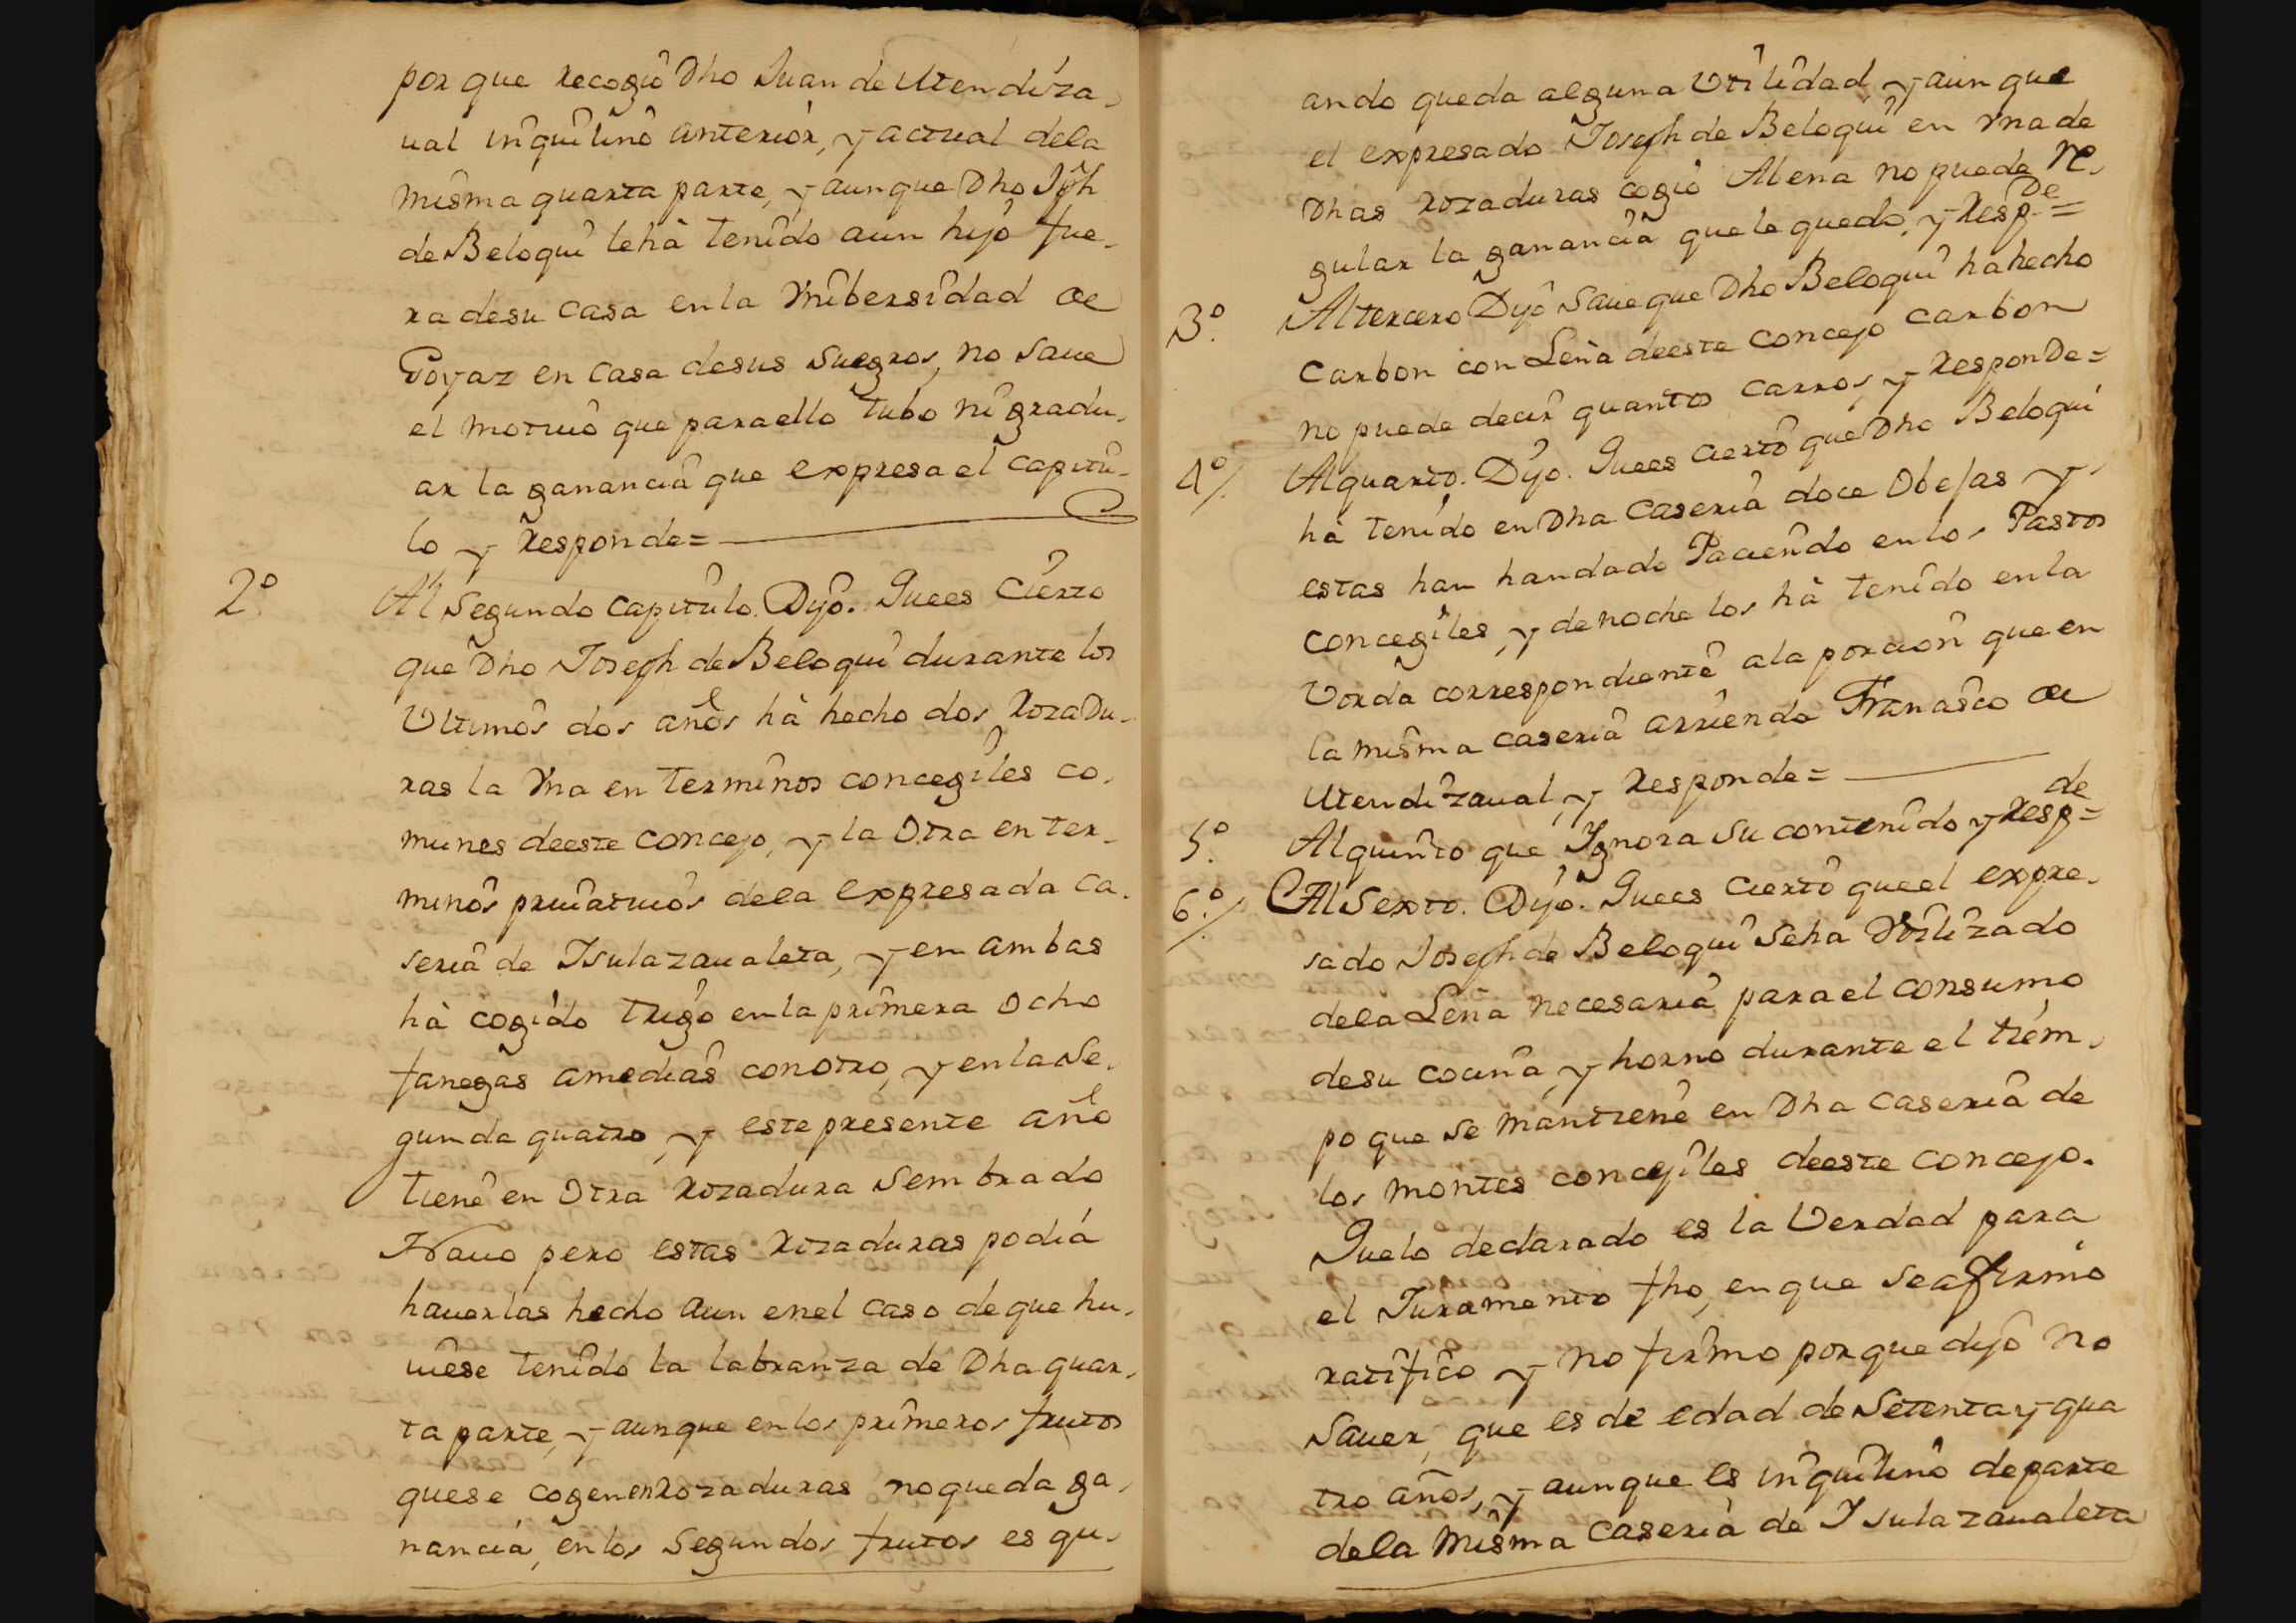 por que recogió Dho Juan de Utendiza-
ual inquilino anterior, y actual dela
misma quarta parte, y aunque Dho Jph
de Beloqui le hà tenido aun hijo fue-
ra desu casa enla Vnibersidad de
Goyaz en casa desus suegros, no saue
el motiuo que paraello tubo ni gradu-
ar la ganancia que expresa el capitu-
lo y Responde=
2º. Al segundo capitulo. Dijo. Quees cierto
que Dho Joseph de Beloqui durante los
Vltimos dos años hà hecho dos Rozadu-
ras la Vna en terminos concegiles co-
munes deeste concejo, y la Otra en ter-
minos priuatiuos dela expresada ca-
seria de Isulazaualeta, y en ambas
hà cogido trigo enla primera ocho
fanegas amedias conotro, y enlase-
gunda quatro, y este presente año
tiene en Otra Rozadura sembrado
Nauo pero estas Rozaduras podia
hauerlas hecho aun enel caso de que hu-
uiese tenido la labranza de Dha quar-
ta parte, y aunque enlos primeros frutos
quese cogen en Rozaduras noqueda ga-
nancia, enlos segundos frutos es qu-
ando queda alguna Vtilidad, y aun que
el expresado Joseph de Beloqui en Vna de
Dhas Rozaduras cogió Abena no puede Re-
gular la ganancia que le quedó, y Respde=
3º. Al tercero Dijo saue que Dho Beloqui ha hecho
carbon con Leña deeste concejo carbon
no puede decir quantos carros, y Responde=
4º/. Al quarto. Dijo. Quees cierto que Dho Beloqui
hà tenido en Dha caseria doce Obejas y
estas han handado Paciendo enlos Pastos
concegiles, y denoche los hà tenido enla
Vorda correspondiente ala porcion que en
la misma caseria arrienda Francisco de
Utendizaual, y Responde=
5º. Al quinto que Ignora su contenido y Respde=
6º./ Al Sexto. Dijo. Quees cierto queel expre-
sado Joseph de Beloqui seha Vtilizado
dela Leña necesaria para el consumo
desu cocina, y horno durante el tiem-
po que se mantiene en Dha caseria de
los montes concejiles deeste concejo.
Quelo declarado es la Verdad para
el Juramento fho, en que seafirmó
ratifico y no firmo porque dijo no
sauer, que es de edad de setenta y qua
tro años, y aunque es inquilino departe
dela misma caseria de Isulazaualeta